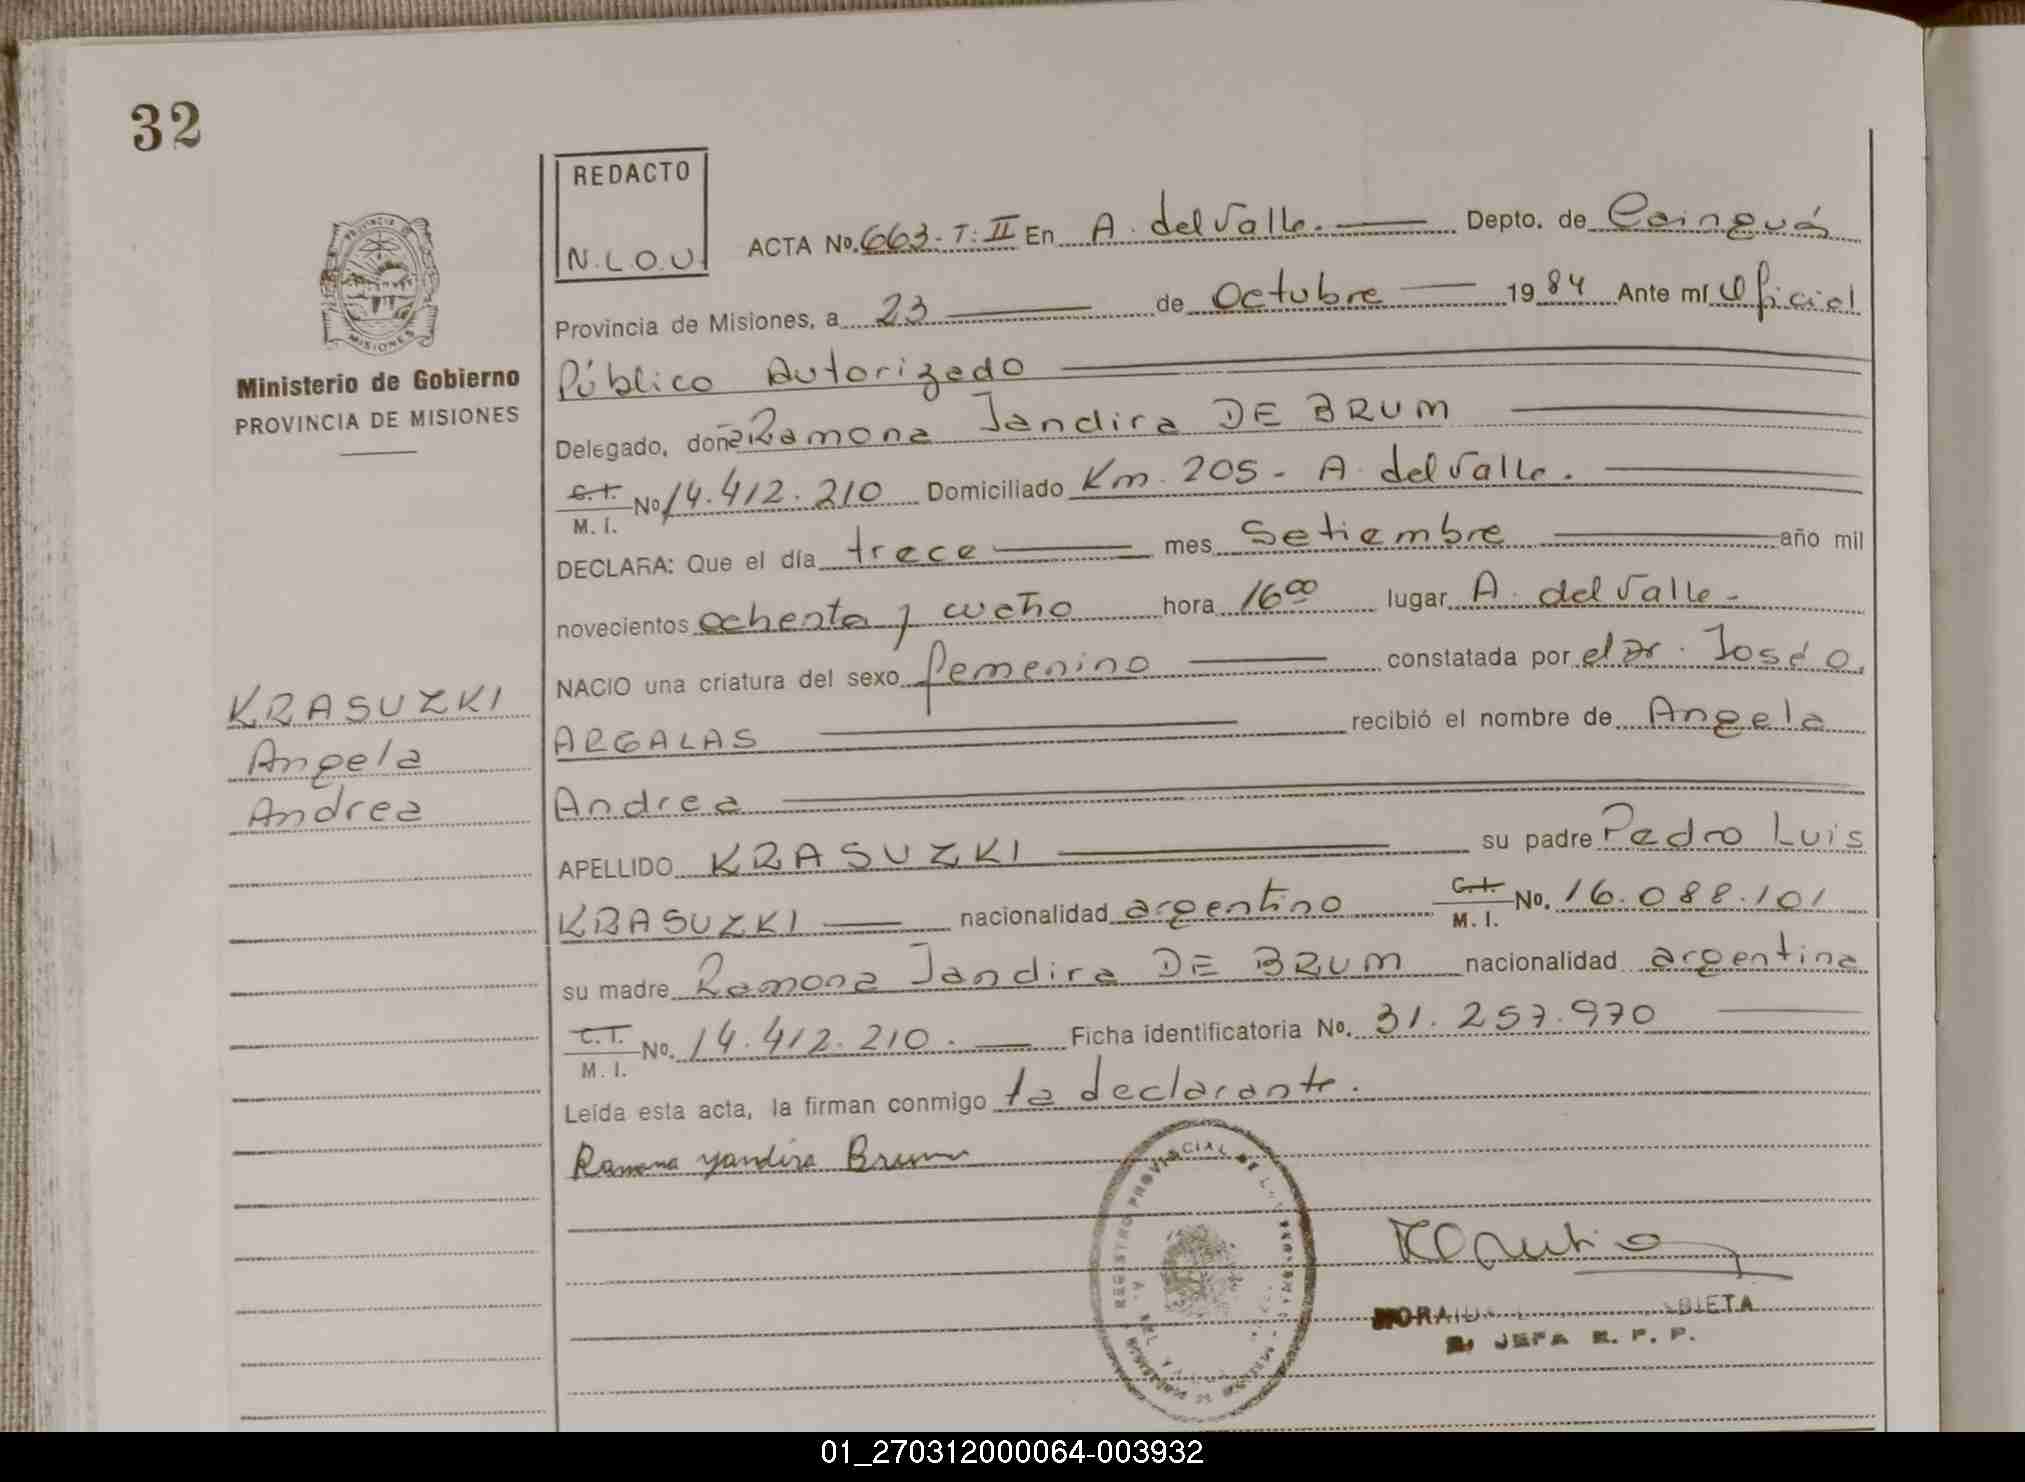 32
REDACTO
N.L.O.U
PROVINCIA DE
MISIONES
Ministerio de Gobierno
PROVINCIA DE MISIONES
ACTA No. 663-T:II En A. del Valle. Depto. de Cainguás
Provincia de Misiones, a 23 de Octubre 1984 Ante mí Oficial
Público Autorizado
Delegado, doña Ramona Jandira DE BRUM
C.I. M. I. No 14.412.210 Domiciliado Km. 205 - A. del Valle.
DECLARA: Que el día trece mes Setiembre año mil
novecientos ochenta y cuatro hora 16 00 lugar A. del Valle -
NACIO una criatura del sexo femenino constatada por el Dr. José O.
ARGALAS recibió el nombre de Angela
Andrea
KRASUZKI
Angela
Andrea
APELLIDO KRASUZKI su padre Pedro Luis
KRASUZKI nacionalidad argentino C.I. M. I. No. 16.088.101
su madre Ramona Jandira DE BRUM nacionalidad argentina
C.I. M. I. No. 14.412.210. Ficha identificatoria No. 31.257.970
Leída esta acta, la firman conmigo la declarante.
Ramona Yandira Brum
REGISTRO PROVINCIAL DE
JEFA R. P. P.
01_270312000064-003932